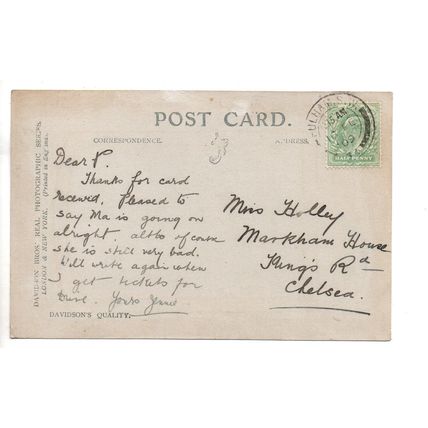 POST CARD.
CORRESPONDENCE.
ADDRESS.
Dear V.
Thanks for card
received. Pleased to
say Ma is going on
alright, altho of course
she is still very bad.
Will write again when
I get tickets for
Yours Jennie
Miss Holley
Markham House
King's Rd
Chelsea.
HALFPENNY
DAVIDSON BROS. REAL PHOTOGRAPHIC SERIES.
LONDON & NEW YORK. (Printed in England).
DAVIDSON'S QUALITY.